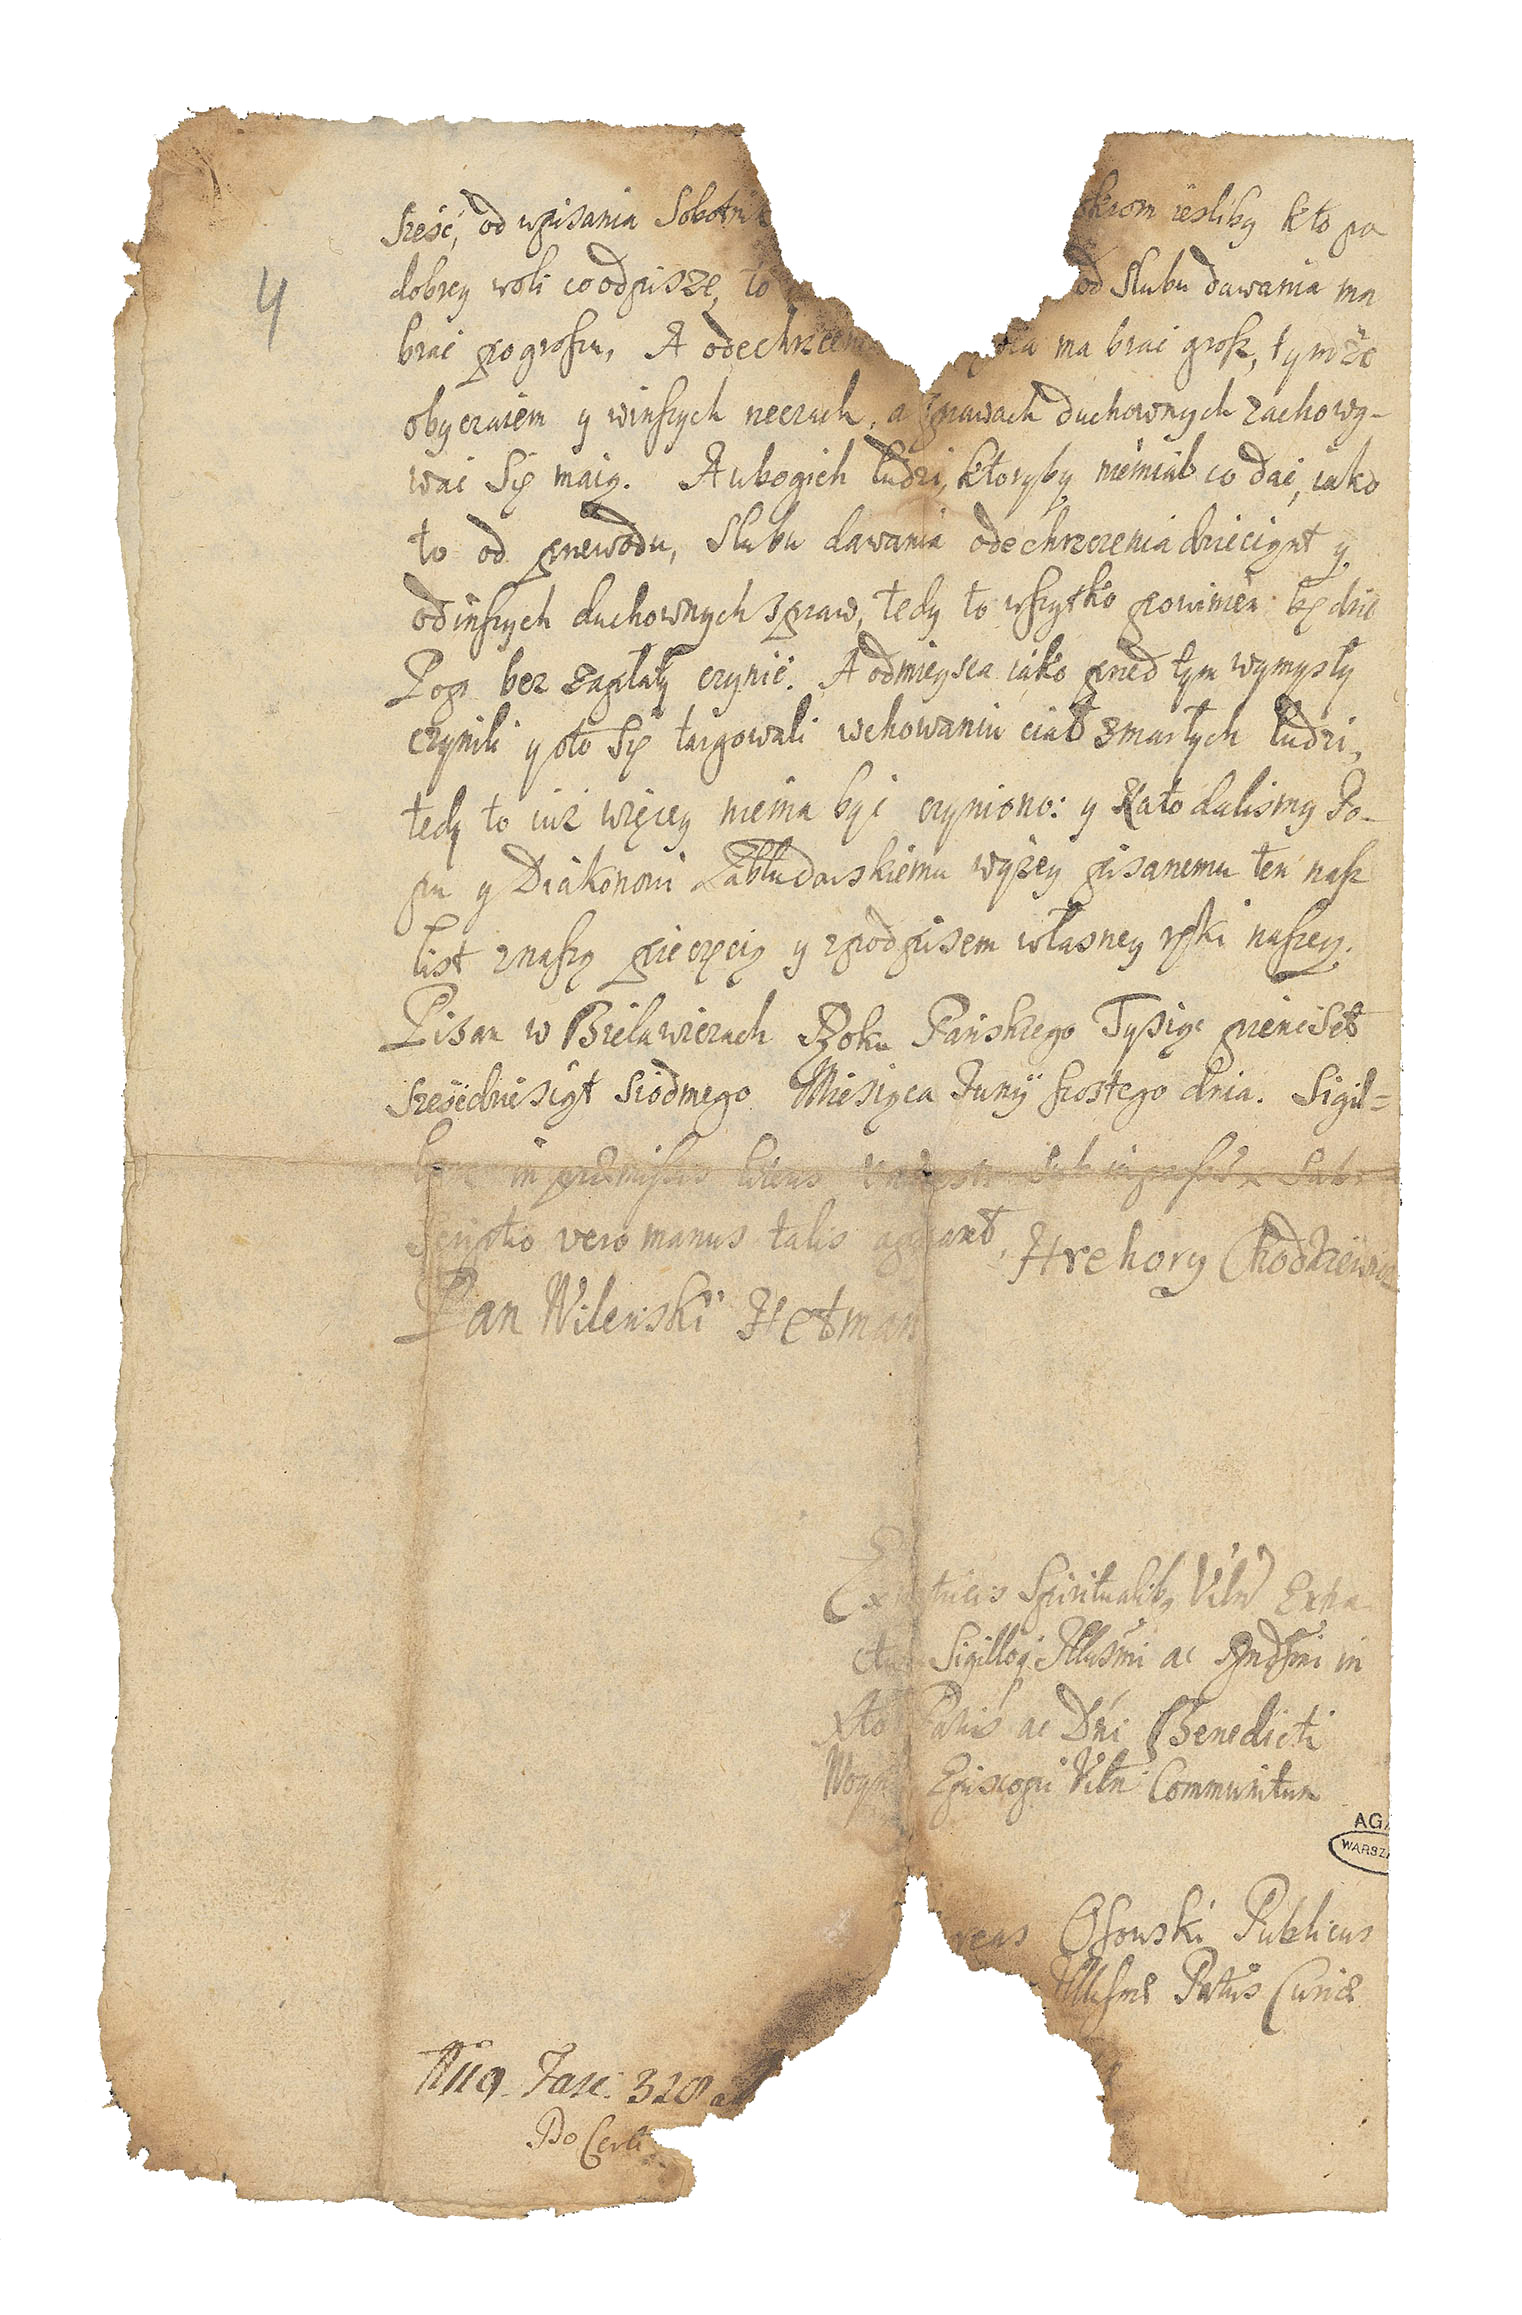 sześć, od wpisania Sobotnik
okrom iesliby kto po
dobrey woli co odpisze, to
od slubu dawania ma
brac po groszu, A ode chrzcen
ma brac grosz, tymże
obyczaiem y winszych rzeczach, a sprawach duchownych zachowy-
wać się maią. A ubogich ludzi, ktoryby niemiał co dać, iako
to od przewodu, slubu dawania ode chrzczenia dzieciąt y
od inszych duchownych spraw, tedy to wszytko powinien będzie
Pop bez zapłaty czynić. A odmieysca iako przed tym wymysły
czynili y oto się targowali wchowaniu ciał zmarłych ludzi,
tedy to iuż więcey niema być czyniono: y Nato dalismy Po-
pu y Diakonowi Zabłudowskiemu wyżey pisanemu ten nasz
list znaszą pieczęcią y zpodpisem własney ręki naszey.
Pisan w Bielawiczach Roku Pańskiego Tysiąc pięncset
sześcdziesiąt siodmego Miesiąca Junÿ szostego dnia. Sigil=
in præmissis literis
scriptio vero manus talis apparet, Hrehory Chodkiewicz
Pan Wilenski Hetman
Spiritualibus Viln Extra
Sigilloq Illusmi ac Rndsmi in
Xto Patris ac Dni Benedicti
Woyna Episcopi Viln Communitum
Osowski Publicus
Illusmæ Curiæ
No 119. Fasc. 320
4
AGA
WARSZA